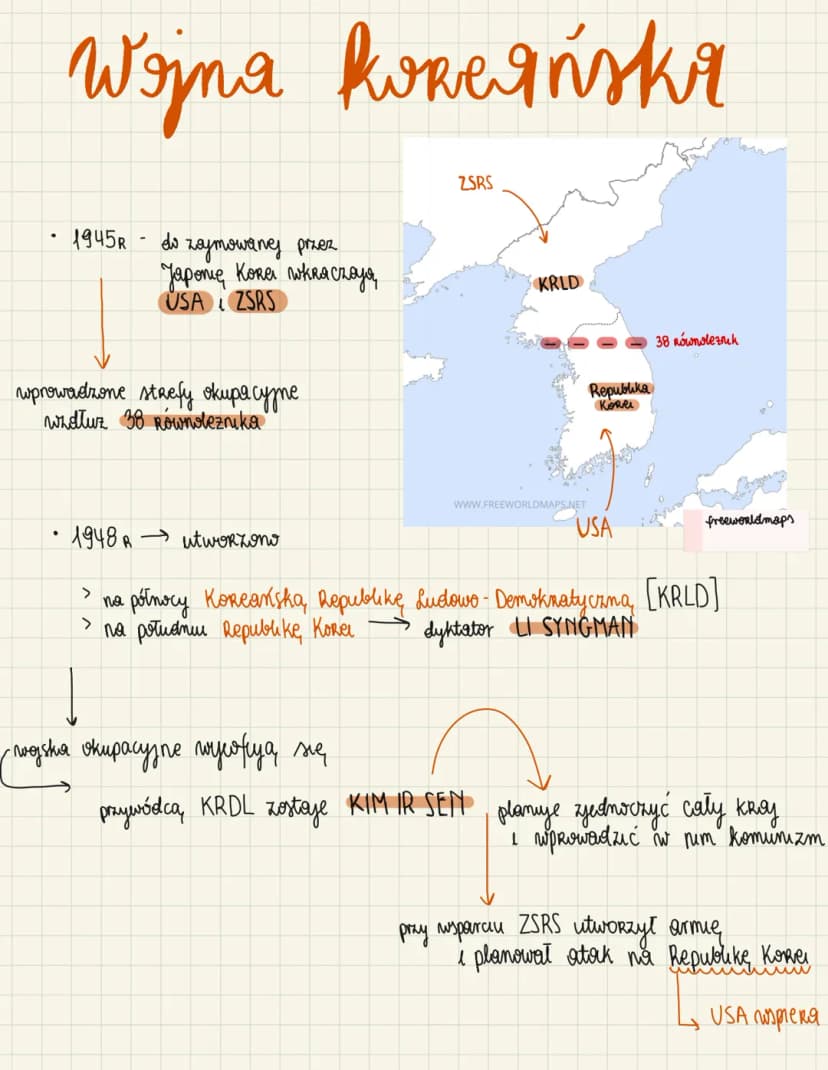 Wojna Koreańska
• 1945R - do zajmowanej przez
Japonię Korei wkraczają
USA i ZSRS
wprowadzone strefy okupacyjne
wzdłuż 38 równoleżnika
ZSRS
KRLD
38 równoleżnik
Republika
Korei
WWW.FREEWORLDMAPS.NET
USA
freeworldmaps
• 1948 R → utworzono
> na północy Koreańską Republikę Ludowo-Demokratyczną [KRLD]
> na południu Republikę Korei → dyktator LI SYNGMAN
wojska okupacyjne wycofują się
przywódcą KRDL zostaje KIM IR SEN
planuje zjednoczyć cały kraj
i wprowadzić w nim komunizm
przy wsparciu ZSRS utworzył armię
i planował atak na Republikę Korei
USA wspiera